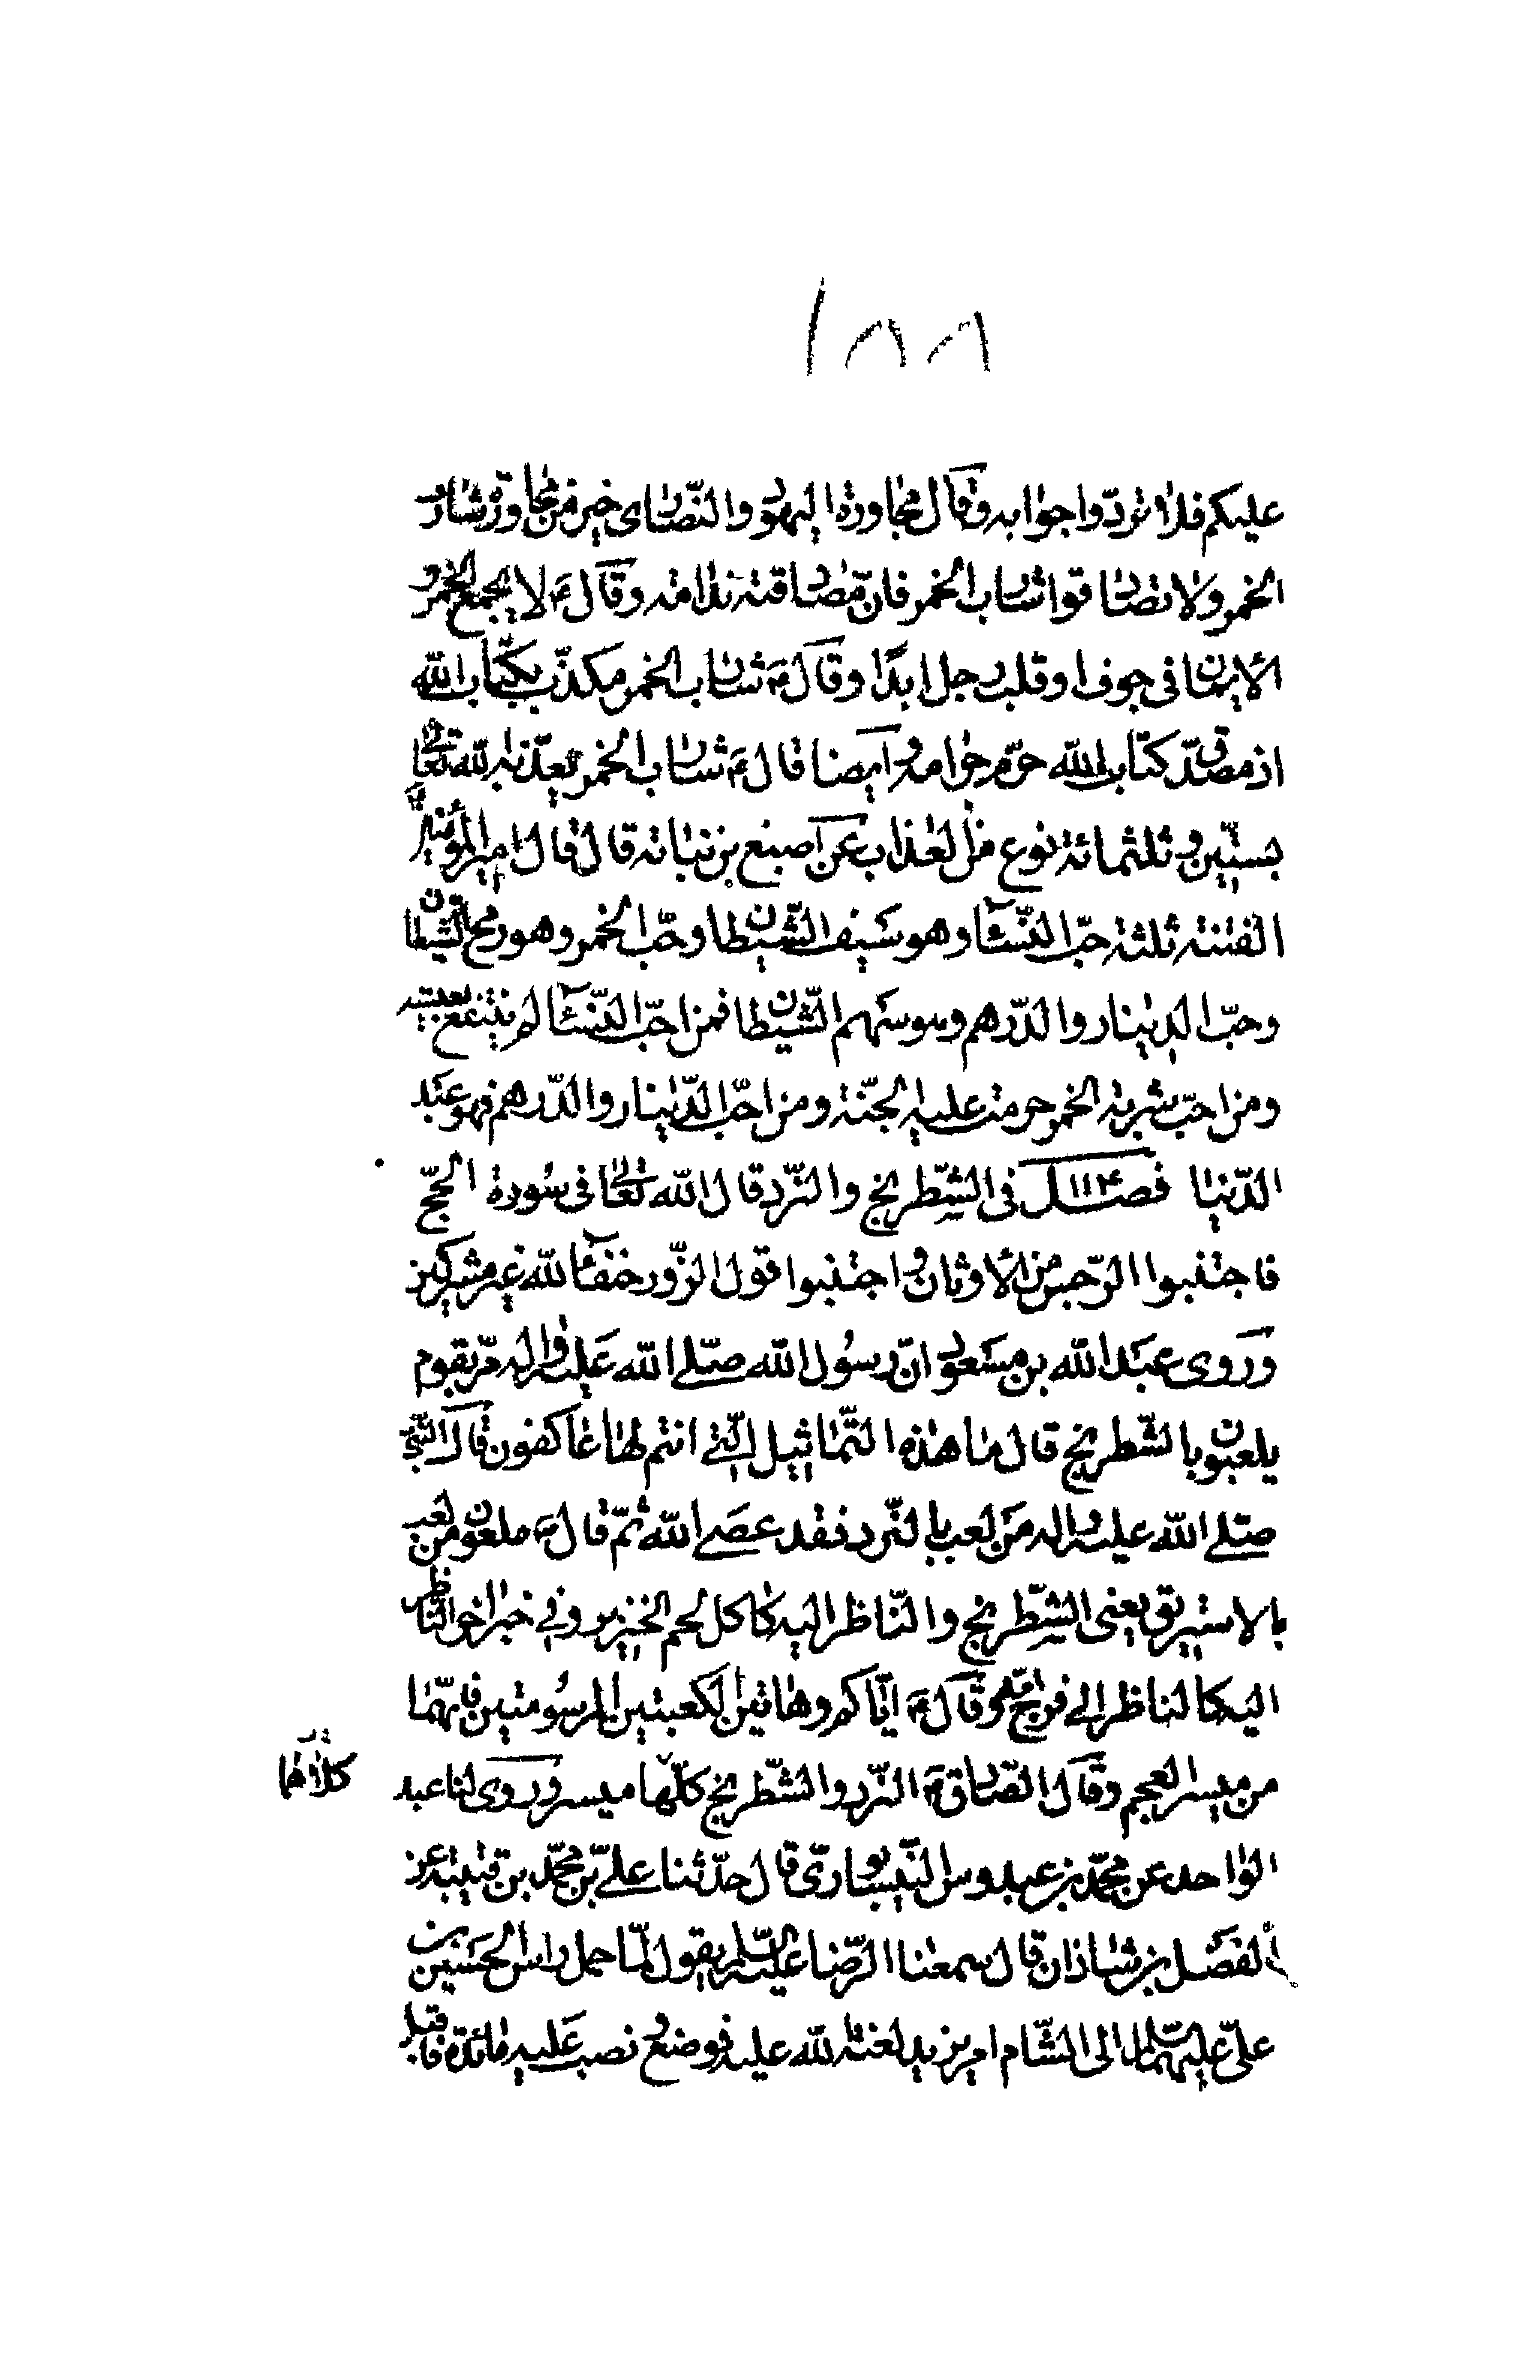 ١٨٨
عليكم فلا تردّوا جوابه وقال مجاورة اليهود والنّصارى خير من مجاورة شارب
الخمر ولا تصادقوا شارب الخمر فانّ مصادقته ندامته وقال ع لا يجمع الخمر و
الأيمان فى جوف او قلب رجل ابدًا وقال ع شارب الخمر مكذّب بكتاب الله
اذ مصدّق كتاب الله حرّم حرامه وايضا قال ع شارب الخمر يعذّبه الله تعالى
بستّين وثلثمائة نوع من العذاب عن اصبغ بن نباته قال قال امير المؤمنين ع
الفتنة ثلثة حبّ النّسآء وهو سيف الشّيطان وحبّ الخمر وهو رمح الشيطان
وحبّ الدينار والدّرهم وهو سهم الشّيطان فمن احبّ النّسآء لم ينتفع بعيشه
ومن احبّ شربة الخمر حرمت عليه الجنّة ومن احبّ الدّينار والدّرهم فهو عبد
الدّنيا فصل ١١٤ فى الشّطرنج والنّرد قال الله تعالى فى سورة الحجّ
فاجتنبوا الرّجس من الأوثان واجتنبوا قول الزّور حنفآء لله غير مشركين
وروى عبد الله بن مسعود انّ رسول الله صلّى الله عليه واله مرّ بقوم
يلعبون بالشّطرنج قال ما هذه التّماثيل الّتى انتم لها عاكفون قال النّبىّ
صلّى الله عليه واله من لعب بالنّرد فقد عصى الله ثمّ قال ع ملعون من لعب
بالاستيريق يعنى الشّطرنج والنّاظر اليه كاكل لحم الخنزير وفى خبر اخر الناظر
اليه كالناظر الى فرج امّه وقال ع ايّاكم وهاتين الكعبتين المرسومتين فانّهما
من ميسر العجم وقال الصّادق ع النّرد والشّطرنج كلّها ميسر وروى لنا عبد
كلاهما
الواحد عن محمّد بن عبدوس النّيسابورىّ قال حدّثنا علىّ بن محمّد بن قتيبة عن
الفضل بن شاذان قال سمعنا الرّضا عليه السّلم يقول لمّا حمل راس الحسين بن
علىّ عليهما السّلم الى الشّام امر يزيد لعنة الله عليه فوضع ونصب عليه مائدة فاقبل